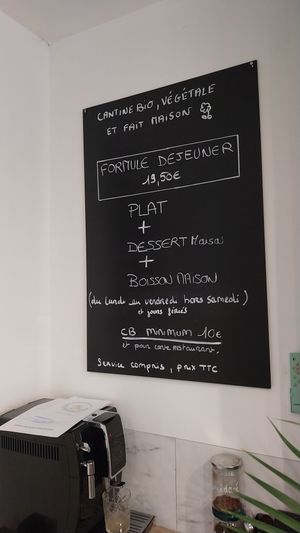 CANTINE BIO, VÉGÉTALE
ET FAIT MAISON
FORMULE DEJEUNER
19,50€
PLAT
+
DESSERT Maison
+
BOISSON MAISON
(du Lundi au vendredi hors Samedi)
et jours fériés
CB MINIMUM 10€
et pour carte restaurant.
SERVICE COMPRIS, PRIX TTC